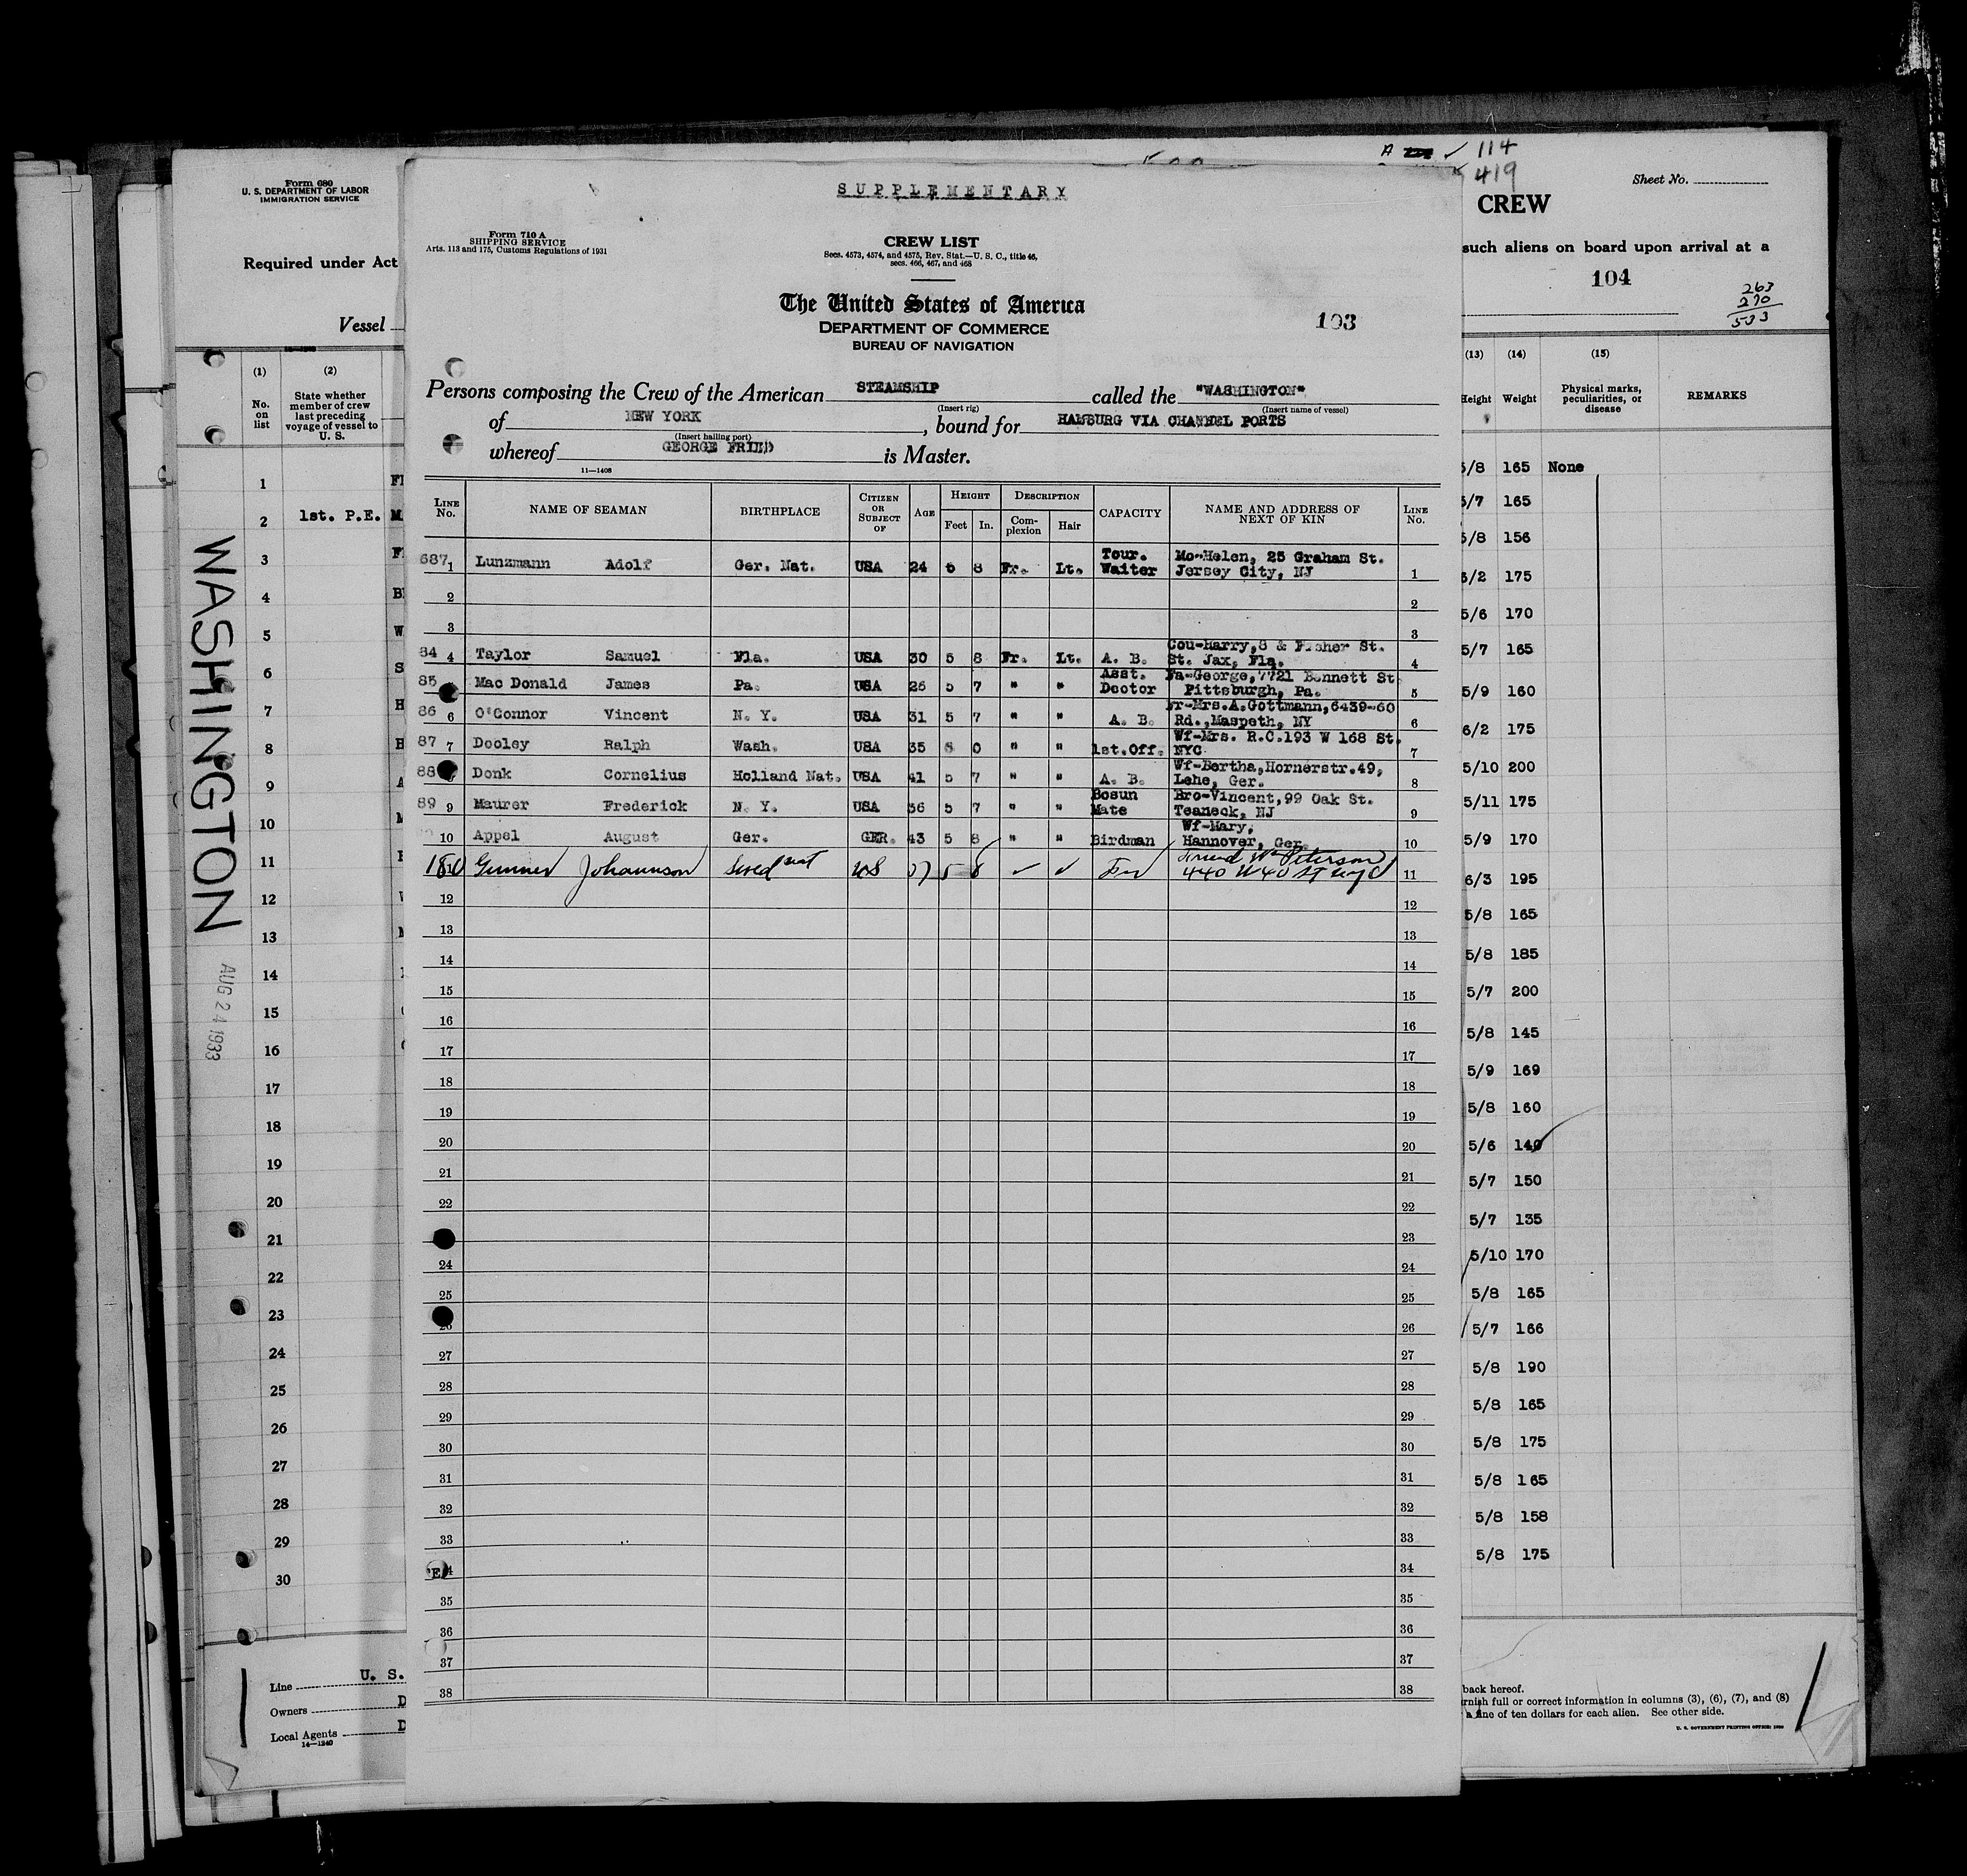 A ✓ 114
419
Form 680
U. S. DEPARTMENT OF LABOR
IMMIGRATION SERVICE
Required under Act
Vessel
(1) (2)
No. on list
State whether member of crew last preceding voyage of vessel to U. S.
1
2 1st. P.E.
3
4
5
6
7
8
9
10
11
12
13
14
15
16
17
18
19
20
21
22
23
24
25
26
27
28
29
30
WASHINGTON
AUG 24 1933
Line U. S.
Owners D
Local Agents D
14—1240
SUPPLEMENTARY
Form 710 A
SHIPPING SERVICE
Arts. 113 and 175, Customs Regulations of 1931
CREW LIST
Secs. 4573, 4574, and 4575, Rev. Stat.—U. S. C., title 46,
secs. 466, 467, and 468
The United States of America
DEPARTMENT OF COMMERCE
BUREAU OF NAVIGATION
103
Persons composing the Crew of the American STEAMSHIP called the "WASHINGTON"
(Insert rig) (Insert name of vessel)
of NEW YORK, bound for HAMBURG VIA CHANNEL PORTS
(Insert hailing port)
whereof GEORGE FRIED is Master.
11—1408
LINE No. NAME OF SEAMAN BIRTHPLACE CITIZEN OR SUBJECT OF AGE HEIGHT Feet In. DESCRIPTION Complexion Hair CAPACITY NAME AND ADDRESS OF NEXT OF KIN LINE No.
687 1 Lunzmann Adolf Ger. Nat. USA 24 5 8 Fr. Lt. Tour. Waiter Mo-Helen, 25 Graham St. Jersey City, NJ 1
2 2
3 3
84 4 Taylor Samuel Fla. USA 30 5 8 Fr. Lt. A. B. Cou-Harry, 8 & Fisher St. St. Jax, Fla. 4
85 Mac Donald James Pa. USA 26 5 7 " " Asst. Doctor Fa-George, 7721 Bennett St. Pittsburgh, Pa. 5
86 6 O'Connor Vincent N. Y. USA 31 5 7 " " A. B. Fr-Mrs.A.Gottmann, 6439-60 Rd., Maspeth, NY 6
87 7 Dooley Ralph Wash. USA 35 6 0 " " 1st.Off. Wf-Mrs. R.C. 193 W 168 St. NYC 7
88 Donk Cornelius Holland Nat. USA 41 5 7 " " A. B. Wf-Bertha, Hornerstr. 49, Lehe, Ger. 8
89 9 Maurer Frederick N. Y. USA 36 5 7 " " Bosun Mate Bro-Vincent, 99 Oak St. Teaneck, NJ 9
10 Appel August Ger. GER. 43 5 8 " " Birdman Wf-Mary, Hannover, Ger. 10
Gunner Johannson Swed nat US 5 8 ✓ ✓ Friend Wm Peterson 440 W 40 St nyc 11
12 12
13 13
14 14
15 15
16 16
17 17
18 18
19 19
20 20
21 21
22 22
23
24 24
25 25
26 26
27 27
28 28
29 29
30 30
31 31
32 32
33 33
34 34
35 35
36 36
37 37
38 38
Sheet No.
CREW
such aliens on board upon arrival at a
104
263
270
533
(13) (14) (15)
Height Weight Physical marks, peculiarities, or disease REMARKS
5/8 165 None
5/7 165
5/8 156
6/2 175
5/6 170
5/7 165
5/9 160
6/2 175
5/10 200
5/11 175
5/9 170
6/3 195
5/8 165
5/8 185
5/7 200
5/8 145
5/9 169
5/8 160
5/6 140
5/7 150
5/7 135
5/10 170
5/8 165
5/7 166
5/8 190
5/8 165
5/8 175
5/8 165
5/8 158
5/8 175
back hereof.
rnish full or correct information in columns (3), (6), (7), and (8)
a fine of ten dollars for each alien. See other side.
U. S. GOVERNMENT PRINTING OFFICE: 1930